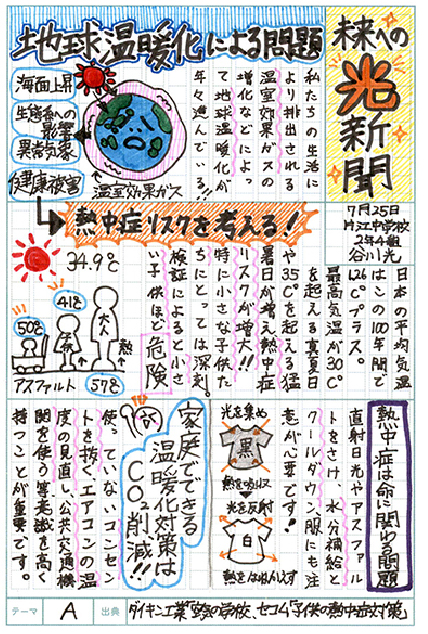 未来への
光
新聞
7月25日
片江中学校
2年4組
谷川光
地球温暖化による問題
私たちの生活に
より排出される
温室効果ガスの
増加などによっ
て地球温暖化が
年々進んでいる!!
海面上昇
生態系への
影響
異常気象
健康被害
温室効果ガス
熱中症リスクを考える!
日本の平均気温
はこの100年間で
1.26℃プラス。
最高気温が30℃
を超える真夏日
や35℃を超える猛
暑日が増え熱中症
リスクが増大!!
特に小さな子供た
ちにとっては深刻。
検証によると小さ
い子供ほど危険
34.9℃
大人
41℃
子供
50℃
熱
アスファルト
57℃
熱中症は命に関わる問題
直射日光やアスファル
トをさけ、水分補給と
クールダウン、服にも注
意が必要です!
光を集め
黒
熱を吸収
光を反射
白
熱をはねかえす
家庭でできる
温暖化対策は
CO2削減!!
使っていないコンセン
トを抜く、エアコンの温
度の見直し、公共交通機
関を使う等意識を高く
持つことが重要です。
テーマ
A
出典